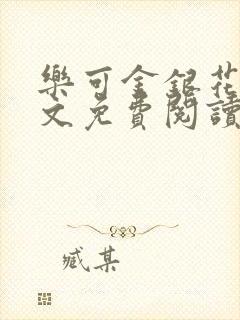 樂可金銀花
文免費閱讀
臧某